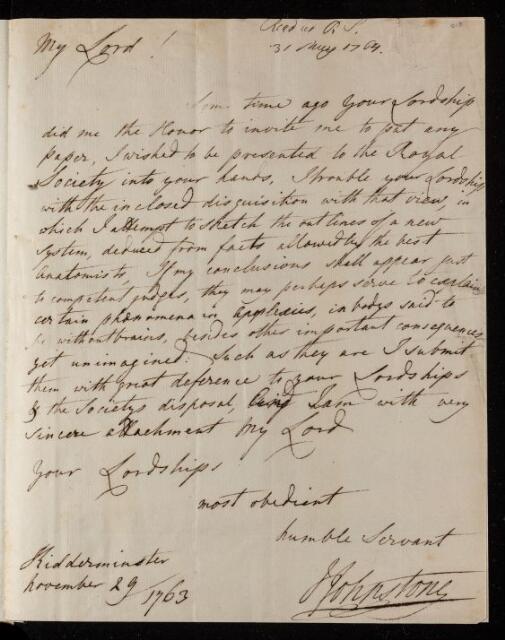 Read at R. S.
31 May 1764.
My Lord!
Some time ago Your Lordship
did me the Honor to invite me to put any
paper, I wished to be presented to the Royal
Society into your hands, I trouble your Lordship
with the inclosed disquisition with that view, in
which I attempt to sketch the outlines of a new
System, deduced from facts allowed by the best
Anatomists, If my conclusions shall appear just
to competent judges, they may perhaps serve to explain
certain phænomena in apoplexies, in bodys said to
be without brains, besides other important consequences
yet unimagined: Such as they are I submit
them with great deference to your Lordships
& the Societys disposal, And I am with very
sincere attachment My Lord
Your Lordships
most obedient
humble Servant
Kidderminster
november 29
1763
J Johnstone